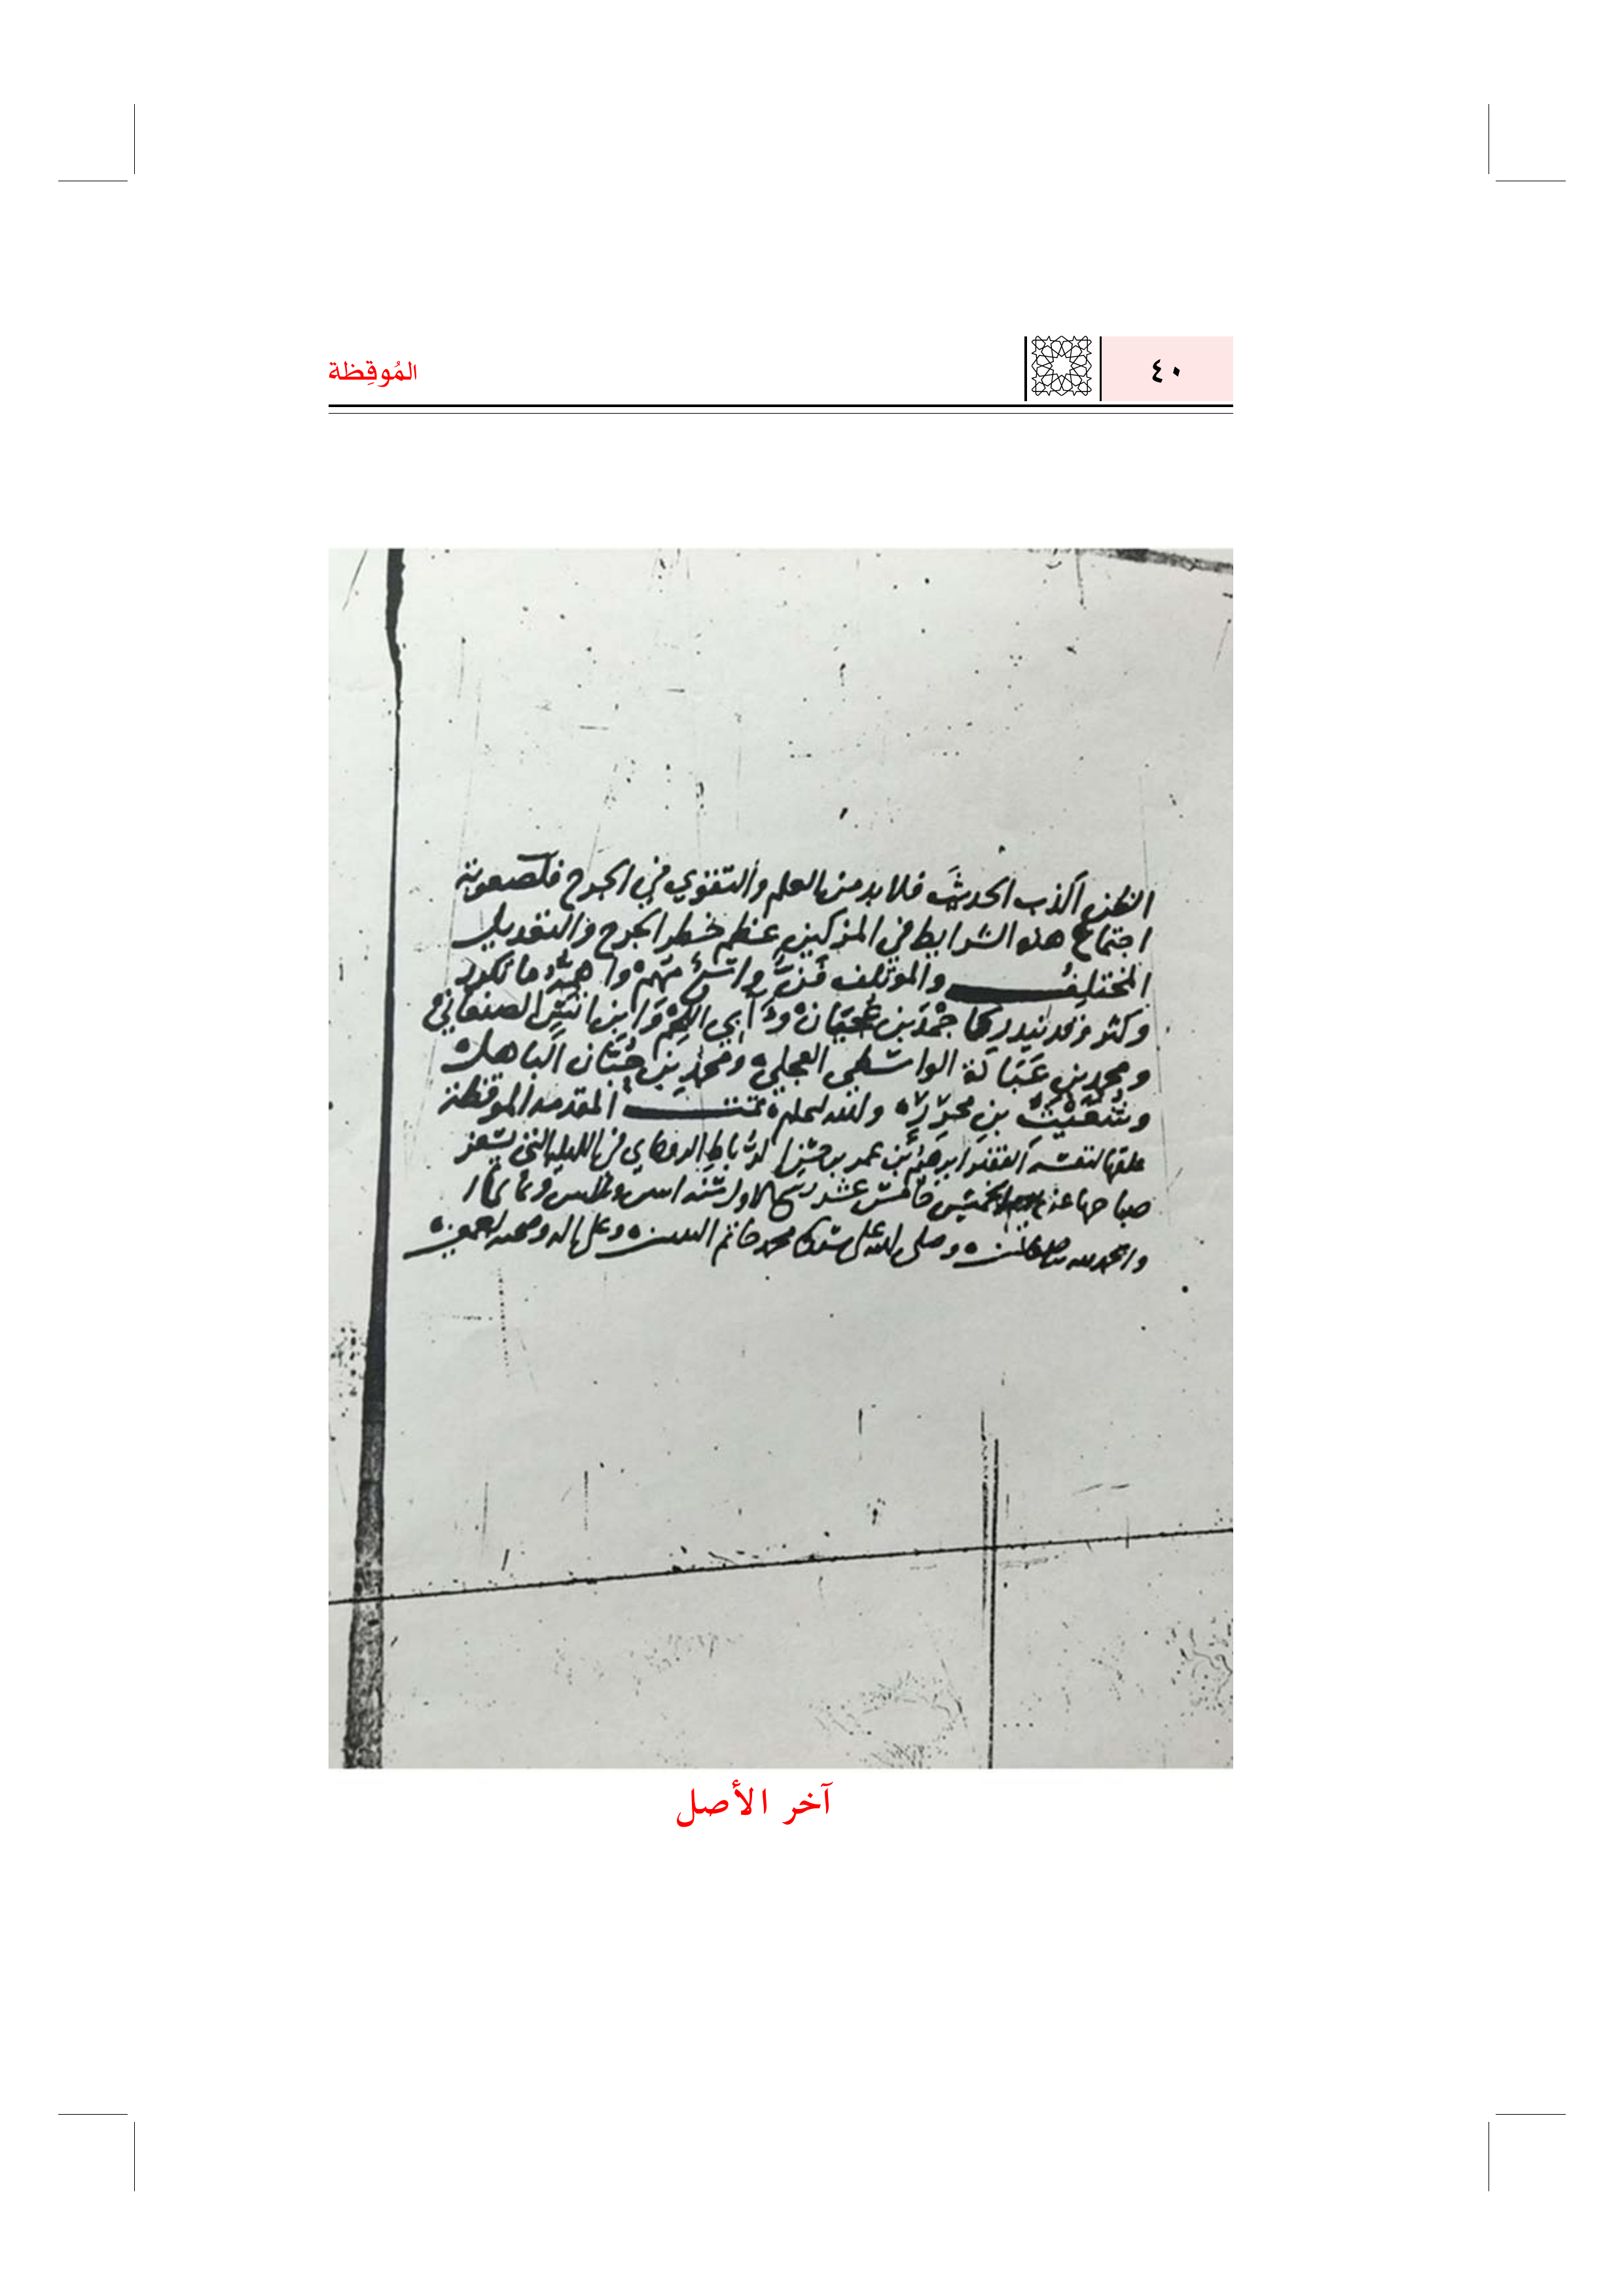 ٤٠
المُوقِظة
الظن أكذب الحديث فلا بد من العلم والتقوى في الجرح فلصعوبة
اجتماع هذه الشرايط في المزكين عظم خطر الجرح والتعديل
المختلف والموتلف فن واسع مهم واهمه ما تكرر
وكثر وقد يندر كا حمد بن عجيان وابي اللحم وابن اتش الصنعاني
ومحمد بن عبادة الواسطي العجلي ومحمد بن حبان الباهلي
وشعيث بن محرر والله اعلم تمت المقدمة الموقظة
علقها لنفسه الفقير ابرهيم بن عمر بن حسن الرباط البقاعي في الليله التي يسفر
صباحها عن الخميس خامس عشر ربيع الاول سنه
والحمد لله وصلى الله على سيدنا محمد خاتم النبيين وعلى اله وصحبه اجمعين
آخر الأصل